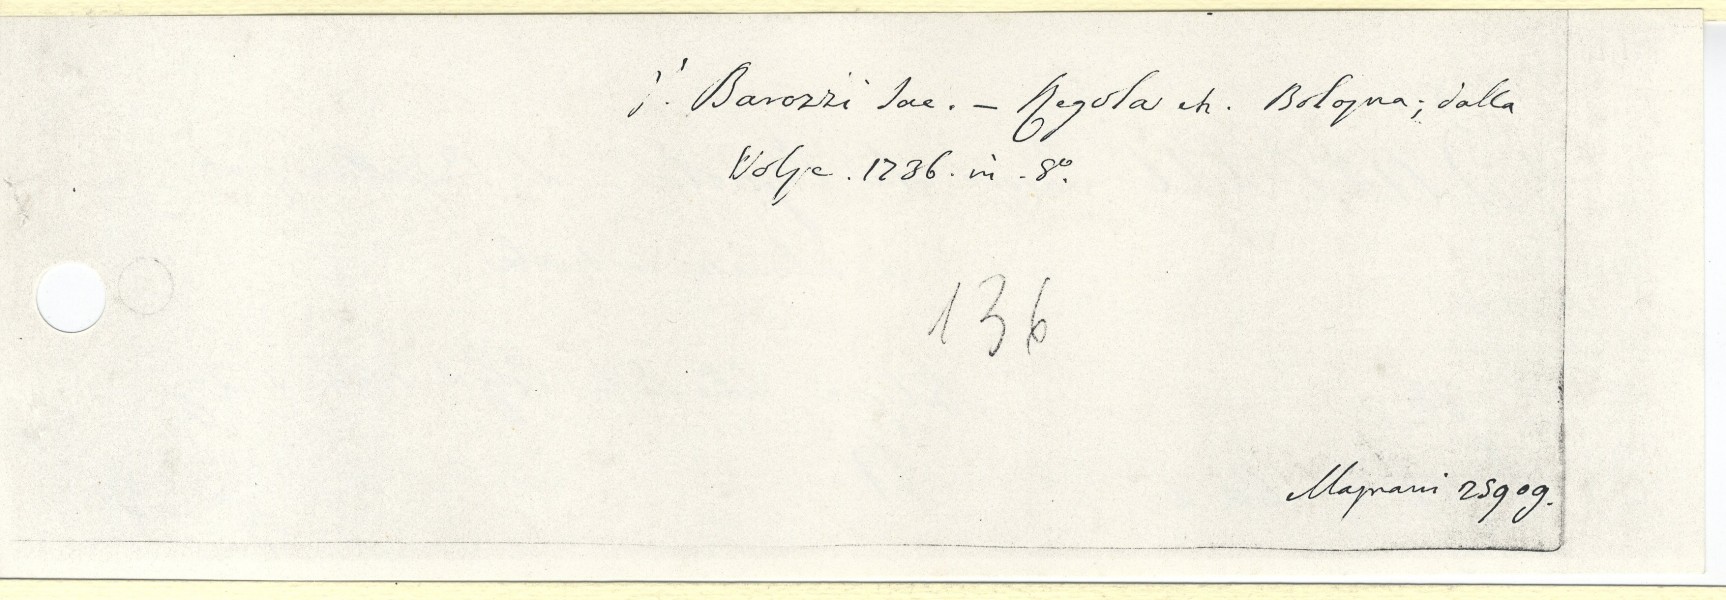 Barozzi Iac. - Regola etc. Bologna; dalla
Volpe. 1736. in -8º.
136
Magnani 25909.